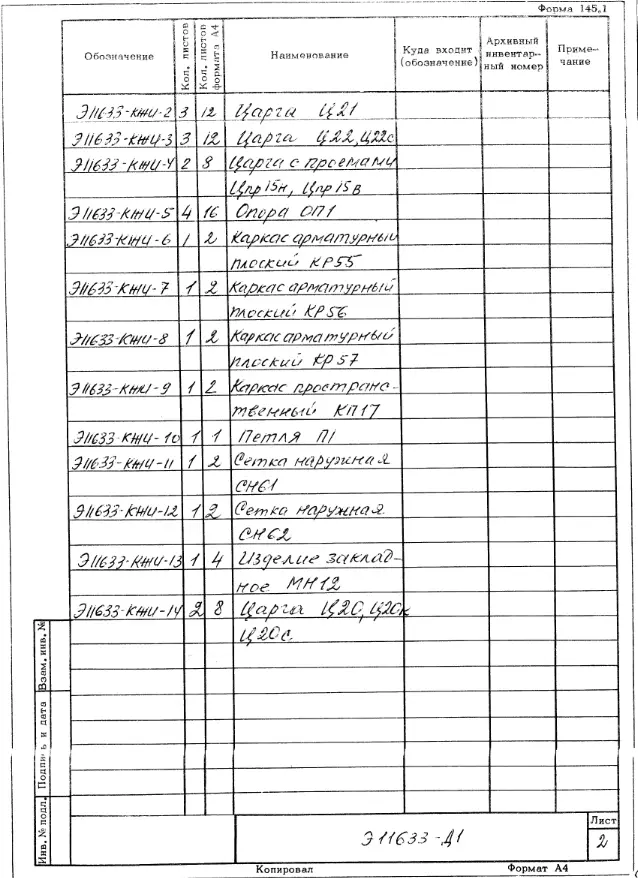 Форма 145.1
Обозначение Кол. листов Кол. листов формата А4 Наименование Куда входит (обозначение) Архивный инвентарный номер Примечание
Э11633-КЖИ-2 3 12 Царга Ц21
Э11633-КЖИ-3 3 12 Царга Ц22, Ц22с
Э11633-КЖИ-4 2 8 Царга с проемами
Цпр15н, Цпр15в
Э11633-КЖИ-5 4 16 Опора ОП1
Э11633-КЖИ-6 1 2 Каркас арматурный
плоский КР55
Э11633-КЖИ-7 1 2 Каркас арматурный
плоский КР56
Э11633-КЖИ-8 1 2 Каркас арматурный
плоский КР57
Э11633-КЖИ-9 1 2 Каркас пространс-
твенный КП17
Э11633-КЖИ-10 1 1 Петля П1
Э11633-КЖИ-11 1 2 Сетка наружная
СН61
Э11633-КЖИ-12 1 2 Сетка наружная
СН62
Э11633-КЖИ-13 1 4 Изделие заклад-
ное МН12
Э11633-КЖИ-14 2 8 Царга Ц20, Ц20к
Ц20с.
Взам. инв. №
Подпись и дата
Инв. № подл.
Э11633-Д1
Лист
2
Копировал Формат А4